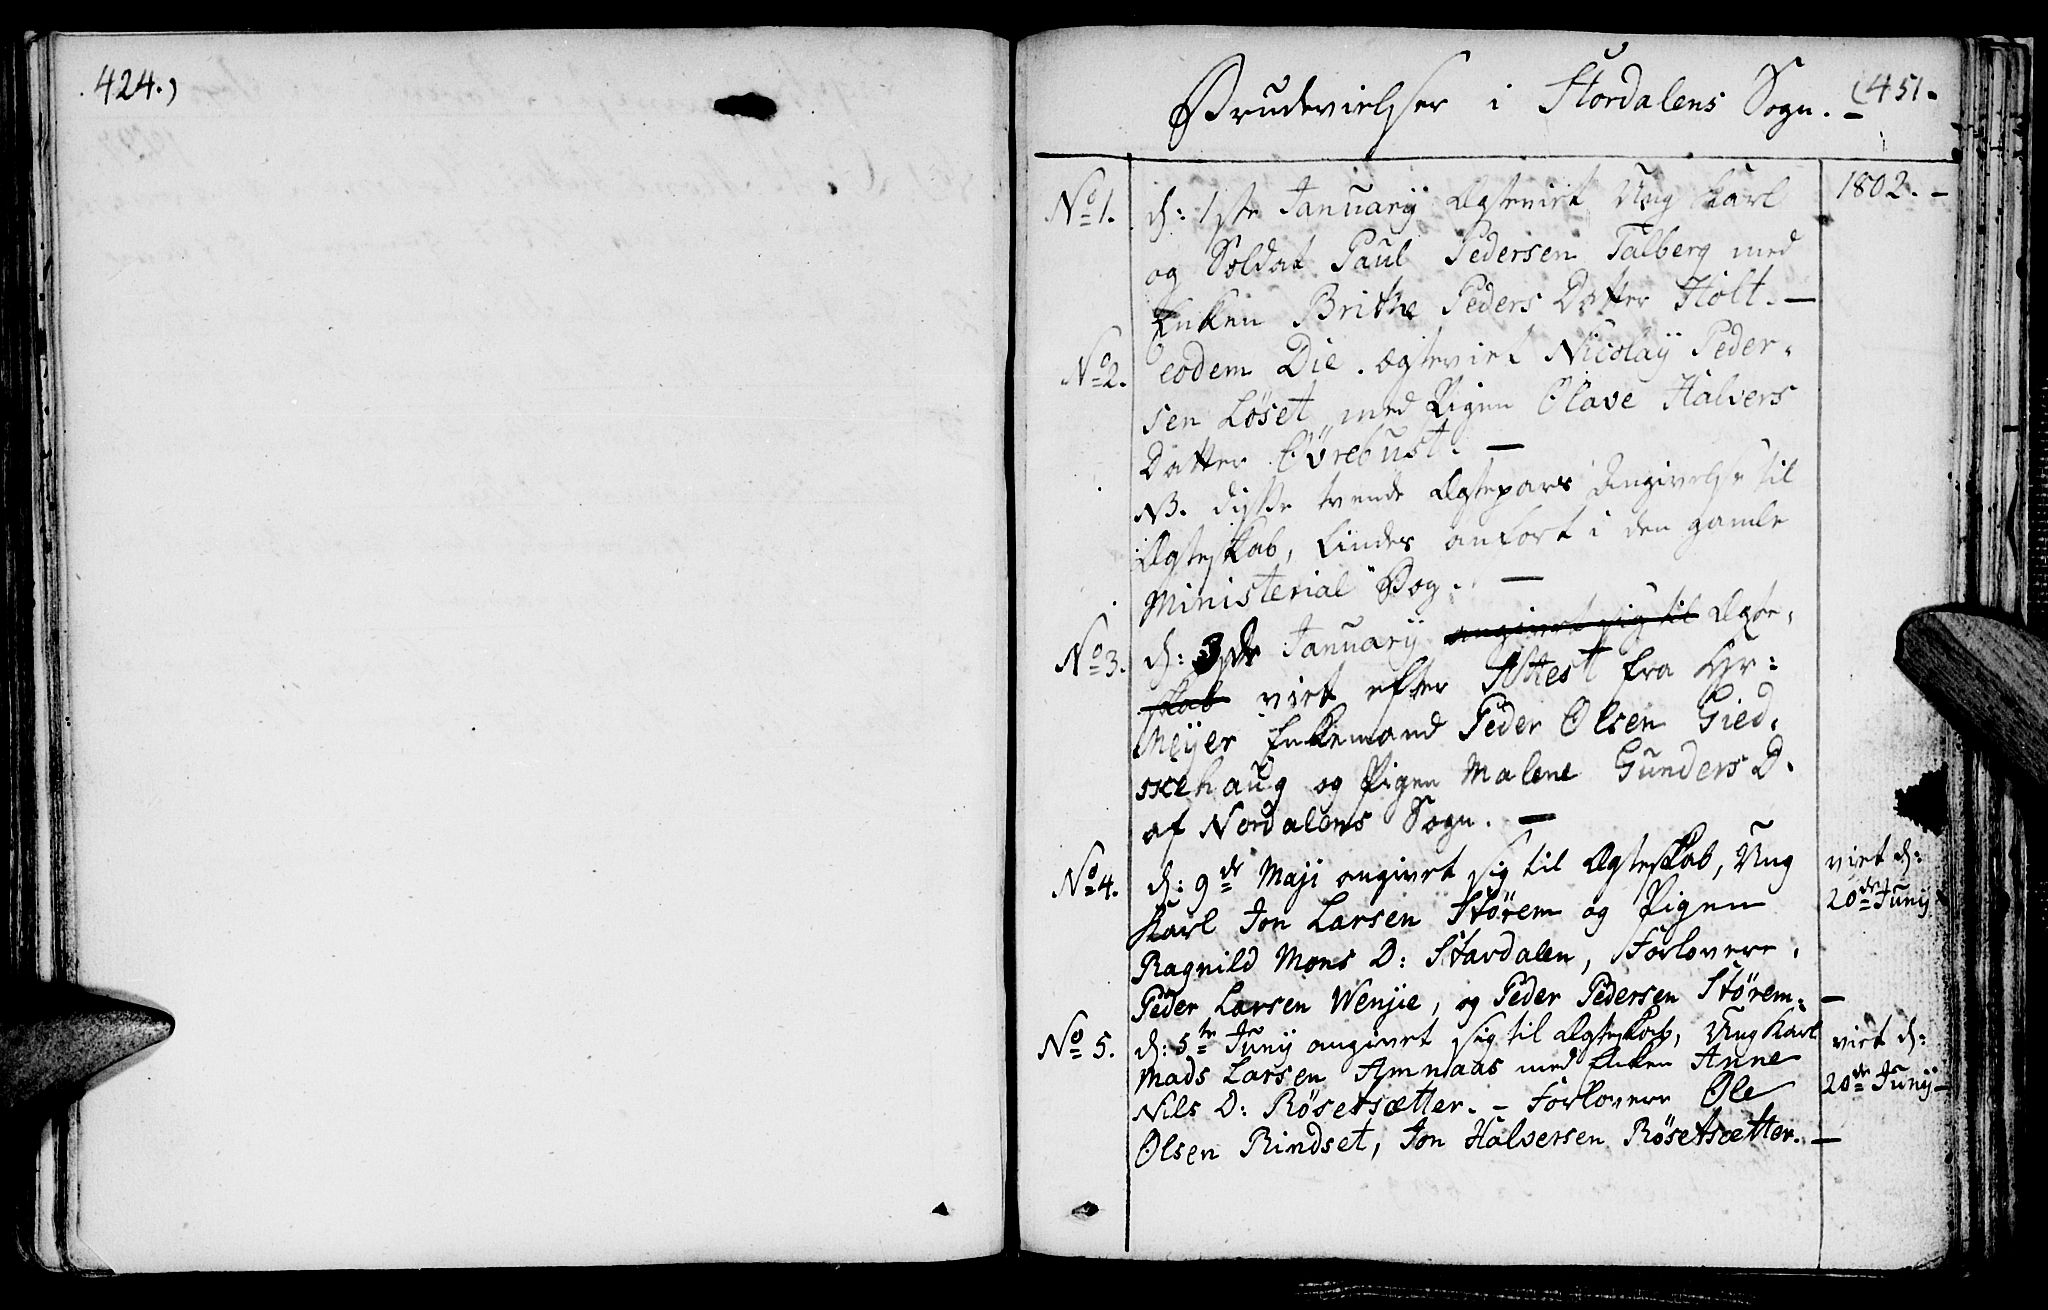 424.)
Brudevielser i Stordalens Sogn. –
(451.
1802. –
No 1. d: 1ste Januarÿ Ægteviet Ung Karl
og Soldat Paul Pedersen Talberg med
Enken Brithe Peders Datter Holt. –
No 2. eodem Die. Ægteviet Nicolaÿ Peder-
sen Løset med Pigen Olave Halvers
Datter Øvrebust. –
NB. disse tvende Ægtepars Angivelse til
Ægteskab, findes anført i den gamle
Ministerial Bog. –
No 3. d: 3de Januarÿ angivet sig til Ægte-
skab viet efter Attest fra Hr:
Meÿer Enkemand Peder Olsen Gied-
skehaug og Pigen Malene Gunders D.
af Nordalens Sogn. –
No 4. d: 9de Maji angivet sig til Ægteskab, Ung
Karl Jon Larsen Størem og Pigen
Ragnild Mons D: Stavdalen, Forlovere.
Peder Larsen Wenjie, og Peder Pedersen Størem. –
viet d:
20de Junÿ
No 5. d: 5te Junÿ angivet sig til Ægteskab, Ung Karl
Mads Larsen Amnaas med Enken Anne
Nils D: Røsetsætter. – Forlovere Ole
Olsen Rindset, Jon Halversen Røsetsætter. –
viet d:
20de Junÿ –